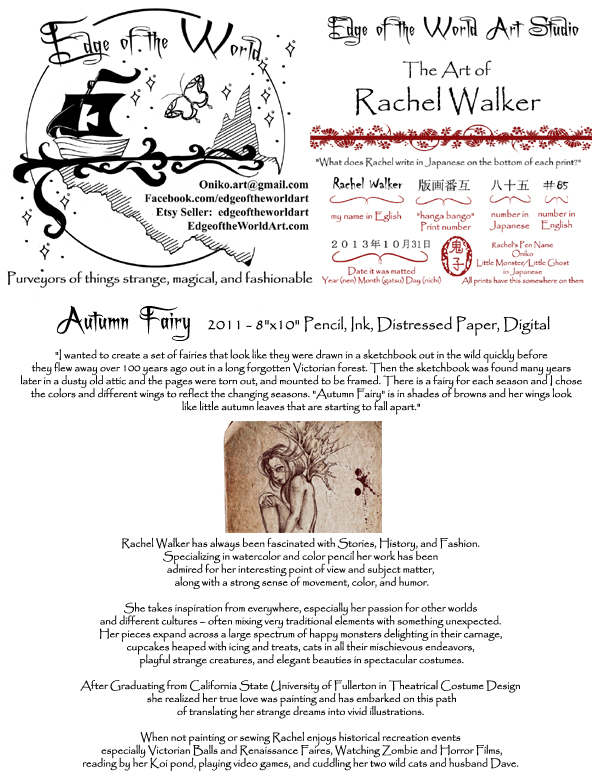 Edge of the World
Oniko.art@gmail.com
Facebook.com/edgeoftheworldart
Etsy Seller: edgeoftheworldart
EdgeoftheWorldArt.com
Purveyors of things strange, magical, and fashionable
Edge of the World Art Studio
The Art of
Rachel Walker
"What does Rachel write in Japanese on the bottom of each print?"
Rachel Walker 版画番互 八十五 #85
my name in Eglish
"hanga bango"
Print number
number in
Japanese
number in
English
2013年10月31日
Date it was matted
Year (nen) Month (gatsu) Day (nichi)
鬼子
Rachel's Pen Name
Oniko
Little Monster/Little Ghost
in Japanese
All prints have this somewhere on them
Autumn Fairy 2011 - 8"x10" Pencil, Ink, Distressed Paper, Digital
"I wanted to create a set of fairies that look like they were drawn in a sketchbook out in the wild quickly before
they flew away over 100 years ago out in a long forgotten Victorian forest. Then the sketchbook was found many years
later in a dusty old attic and the pages were torn out, and mounted to be framed. There is a fairy for each season and I chose
the colors and different wings to reflect the changing seasons. "Autumn Fairy" is in shades of browns and her wings look
like little autumn leaves that are starting to fall apart."
Rachel Walker has always been fascinated with Stories, History, and Fashion.
Specializing in watercolor and color pencil her work has been
admired for her interesting point of view and subject matter,
along with a strong sense of movement, color, and humor.
She takes inspiration from everywhere, especially her passion for other worlds
and different cultures – often mixing very traditional elements with something unexpected.
Her pieces expand across a large spectrum of happy monsters delighting in their carnage,
cupcakes heaped with icing and treats, cats in all their mischievous endeavors,
playful strange creatures, and elegant beauties in spectacular costumes.
After Graduating from California State University of Fullerton in Theatrical Costume Design
she realized her true love was painting and has embarked on this path
of translating her strange dreams into vivid illustrations.
When not painting or sewing Rachel enjoys historical recreation events
especially Victorian Balls and Renaissance Faires, Watching Zombie and Horror Films,
reading by her Koi pond, playing video games, and cuddling her two wild cats and husband Dave.